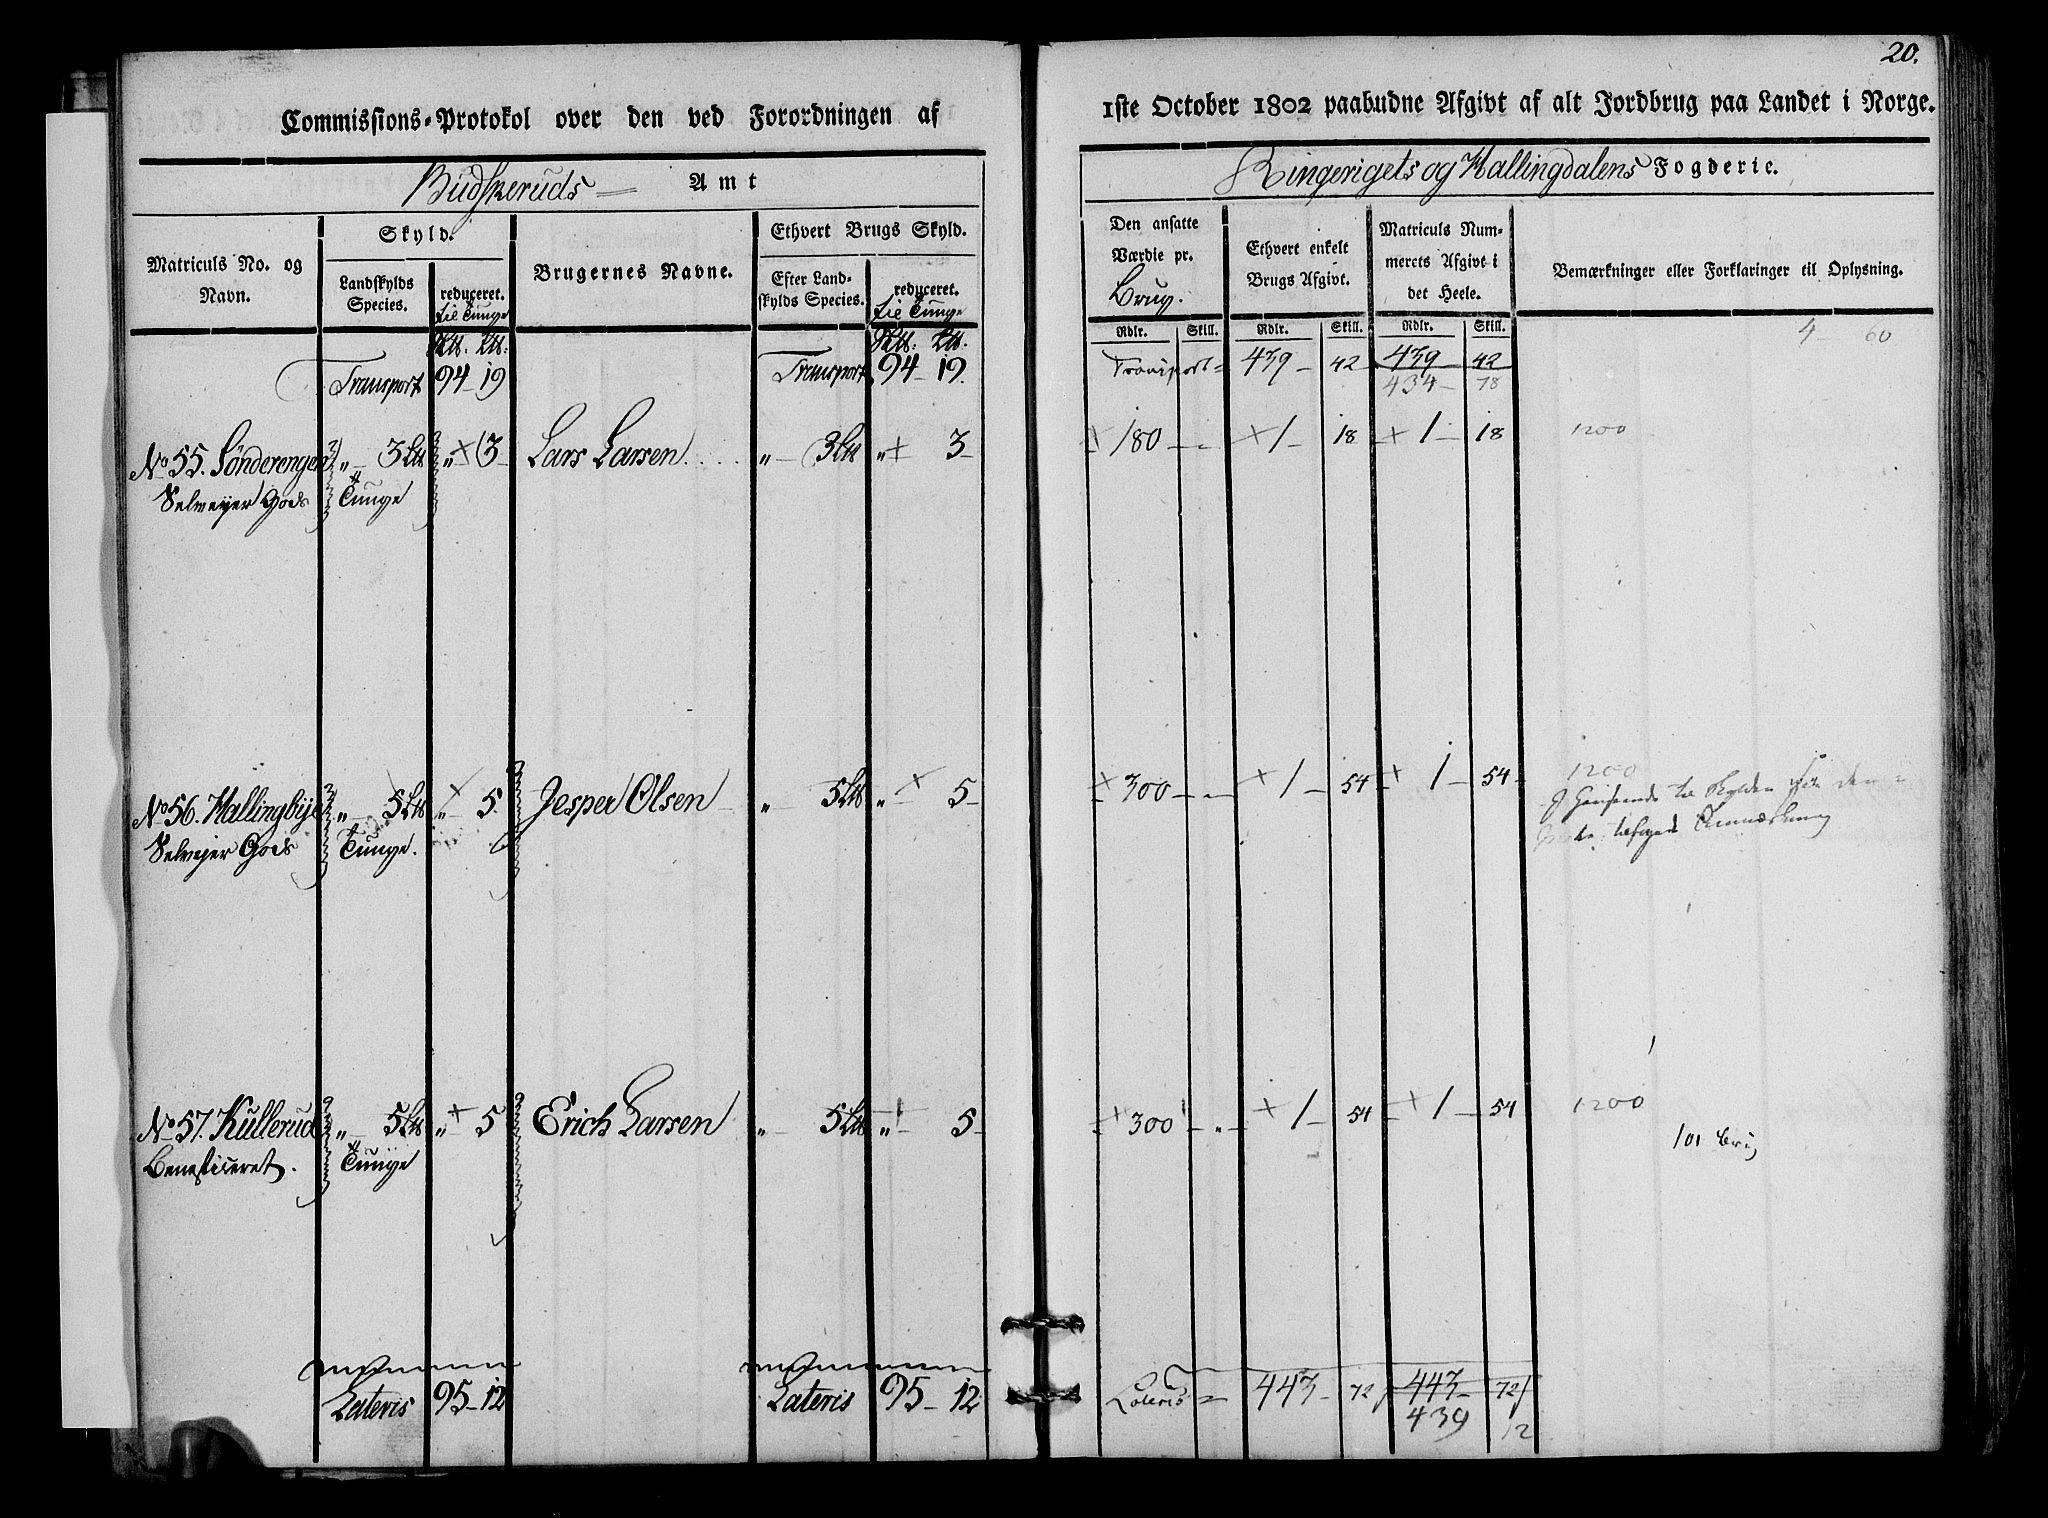 20.
Commissions-Protokol over den ved Forordningen af 1ste October 1802 paabudne Afgivt af alt Jordbrug paa Landet i Norge.
Budskeruds Amt Ringerigets og Hallingdalens Fogderie.
Matriculs No. og Navn.
Skyld.
Landskylds Species.
reduceret. til Tunge
Brugernes Navne.
Ethvert Brugs Skyld.
Efter Landskylds Species.
reduceret. til Tunge
Den ansatte Værdie pr. Brug.
Ethvert enkelt Brugs Afgivt.
Matriculs Nummerets Afgivt i det Heele.
Bemærkninger eller Forklaringer til Oplysning.
Rdlr. Skill. Rdlr. Skill. Rdlr. Skill.
Transport 94 - 19 Transport 94 - 19. Transport = 439 - 42 439 - 42 4 - 60
434 - 78
No 55. Sønderengen " - 3 Ltt " + 3 - Lars Larsen " - 3 Ltt " + 3 - + 180 - - + 1 - 18 + 1 - 18 1200
Selveyer Gods Tunge
No 56. Hallingbye " - 5 Ltt " + 5. Jesper Olsen " - 5 Ltt " + 5 - + 300 - " - + 1 - 54 + 1 - 54 - 1200
Selvejer Gods Tunge. 6
No 57. Kullerud " - 5 Ltt " + 5 Erich Larsen " - 5 Ltt " - 5 - + 300 - " - + 1 - 54 + 1 - 54 1200
Beneficeret. Tunge
Lateris 95 - 12 Lateris 95 - 12 Lateris = 443 - 72 443 - 72
439 12